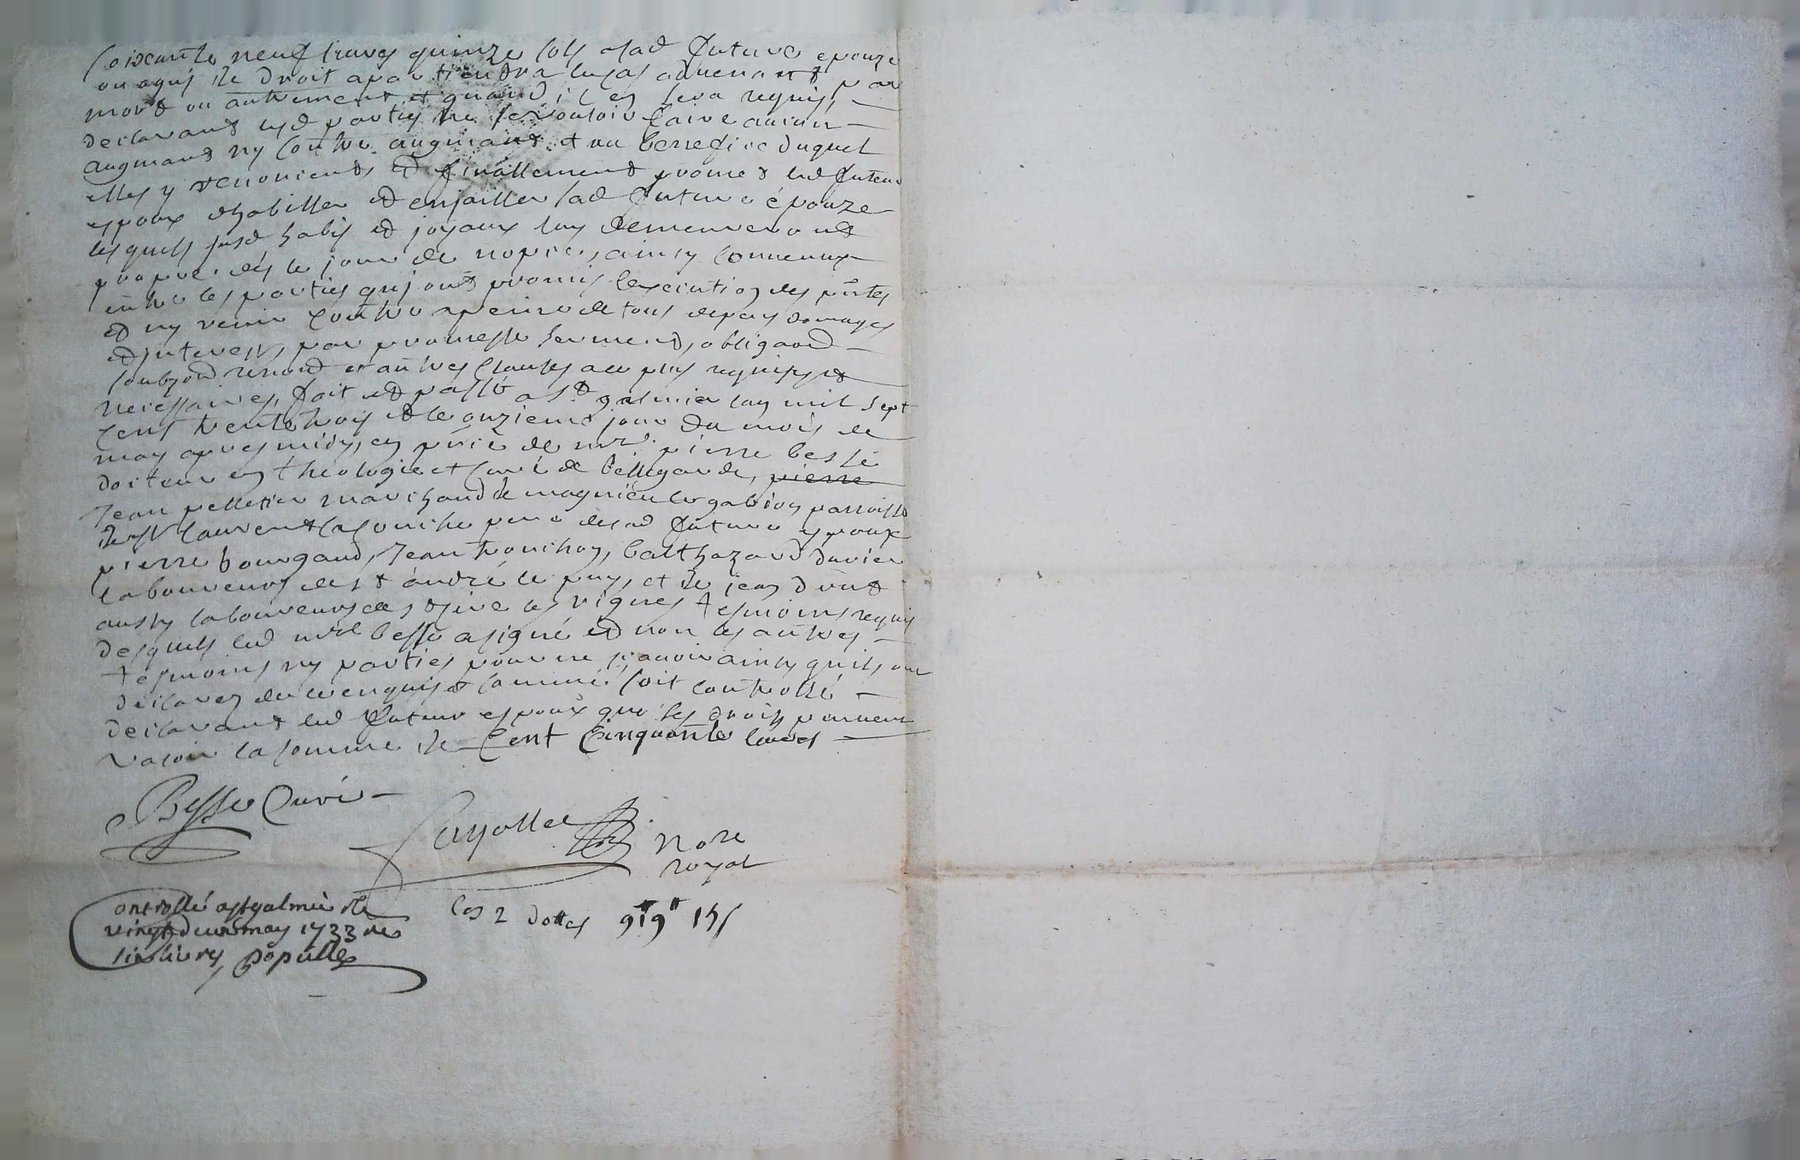 soixante neuf livres quinze sols a lad future epouze
ou aquy de droit apartiendra le cas advenant par
mort ou autrement et quand il en sera requis,
declarant lesd parties ne se vouloir faire aucun
augmand ny contre augmand et au beneffice duquel
elles y renoncient, et finallement promet led futeur
epoux dhabiller et enjoailler lad future épouze
lesquels susd habis et joyaux luy demeureront
propre dés le jour de nopce, ainsy convenu
entre les parties qui ont promis l'execution des pñtes
et ny venir contre a peine de tous depens domages
et interests, par promesse serment, obligaõn
soubzon renonõn et aũtres clauses a ce plus requises et
necessaires, fait et passé a St galmier lan mil sept
cent trente trois et le onzieme jour du mois de
may apres midy, en pñce de mre pierre besse
docteur en theologie et curé de bellegarde, pierre
Jean pelletier marchand de magnieu le gabion parroisse
de st laurent la conche pere dud future epoux
pierre bourgand, Jean tronchon, balthazard davier
laboureurs de st andré le puy, et de jean
aussy laboureurs de st cire les vignes tesmoins requis
desquels led mre besse a signé et non les aũtres
tesmoins ny parties pour ne sçavoir ainsy quils ont
declarez de ce enquis et la minũ soit controllé
declarant led futeur epoux que ses droits peuvent
valoir la somme de Cent Cinquante livres
Besse Curé
Fayolle Nore
royal
Controllé a st galmier le
vingt deux may 1733 rec
six livres, Populle
les 2 dottes 919ᵗᵗ 15ſ